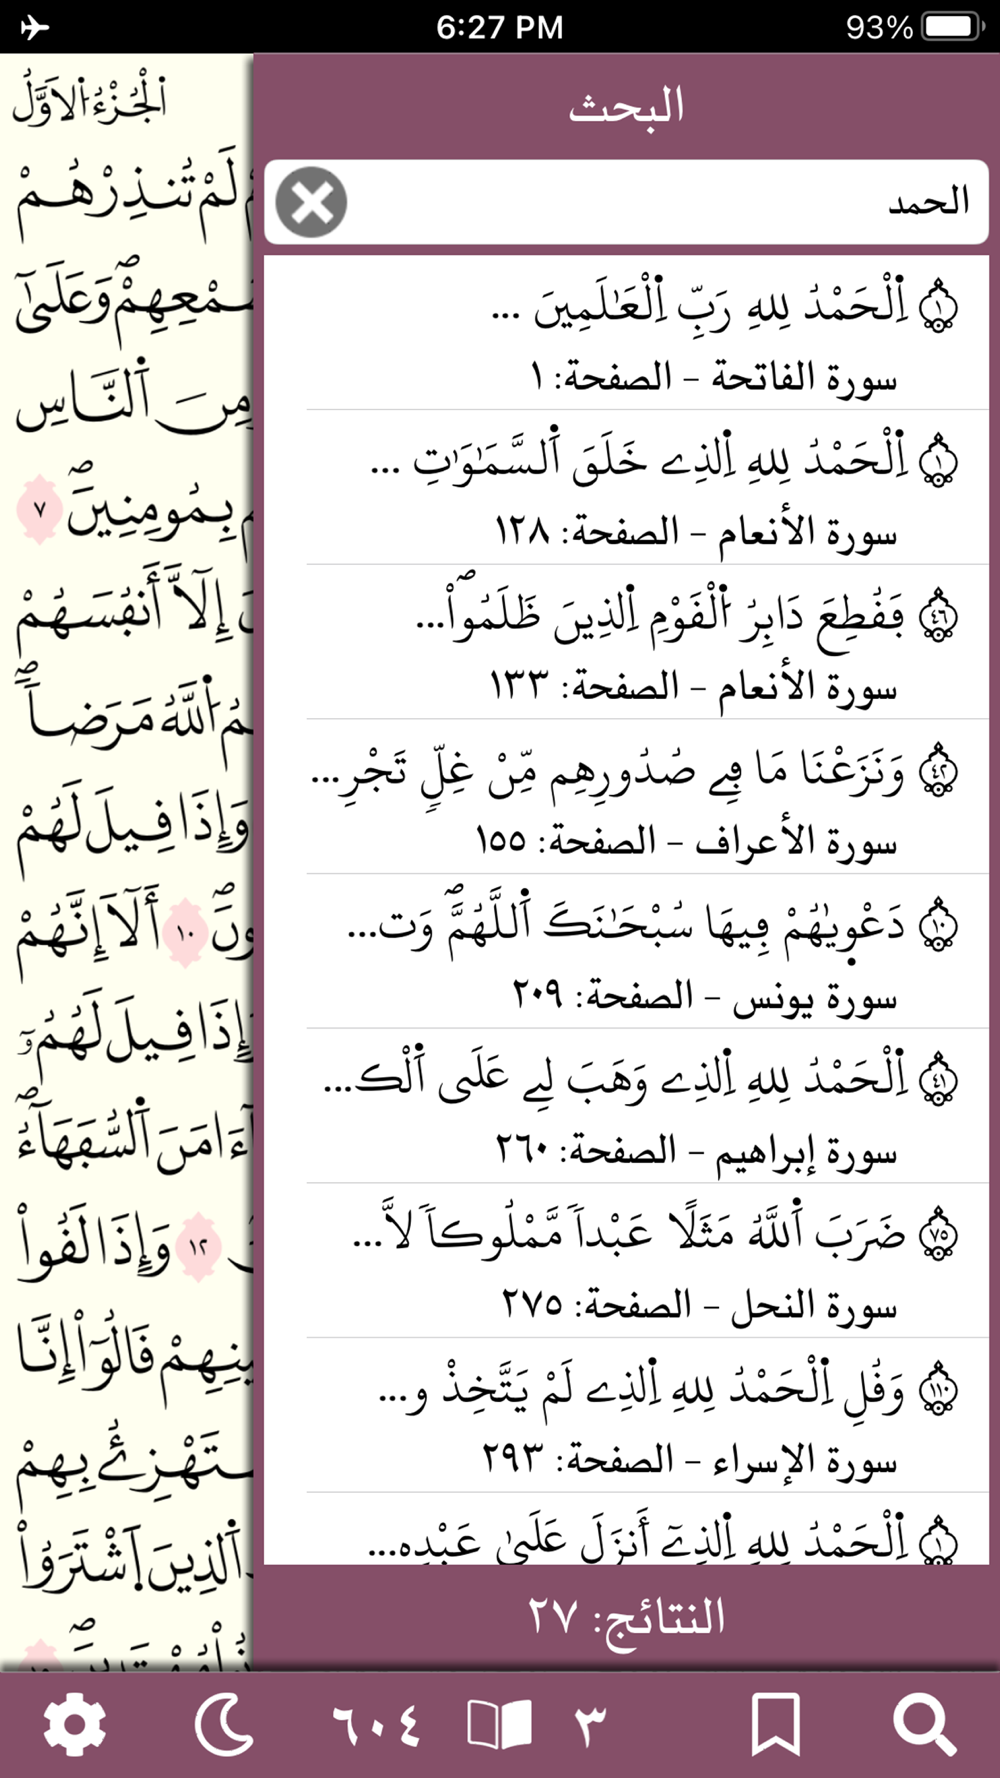 6:27 PM
93%
البحث
الحمد
١ اِ۬لْحَمْدُ لِلهِ رَبِّ اِ۬لْعَٰلَمِينَ ...
سورة الفاتحة - الصفحة: ١
١ اِ۬لْحَمْدُ لِلهِ اِ۬لذِے خَلَقَ اَ۬لسَّمَٰوَٰتِ ...
سورة الأنعام - الصفحة: ١٢٨
٤٦ فَقُطِعَ دَابِرُ اُ۬لْقَوْمِ اِ۬لذِينَ ظَلَمُواْۖ...
سورة الأنعام - الصفحة: ١٣٣
٤٢ وَنَزَعْنَا مَا فِے صُدُورِهِم مِّنْ غِلّٖ تَجْرِ...
سورة الأعراف - الصفحة: ١٥٥
١٠ دَعْو۪يٰهُمْ فِيهَا سُبْحَٰنَكَ اَ۬للَّهُمَّۖ وَت...
سورة يونس - الصفحة: ٢٠٩
٤١ اِ۬لْحَمْدُ لِلهِ اِ۬لذِے وَهَبَ لِے عَلَى اَ۬لْك...
سورة إبراهيم - الصفحة: ٢٦٠
٧٥ ضَرَبَ اَ۬للَّهُ مَثَلًا عَبْداٗ مَّمْلُوكاٗ لَّا...
سورة النحل - الصفحة: ٢٧٥
١١٠ وَقُلِ اِ۬لْحَمْدُ لِلهِ اِ۬لذِے لَمْ يَتَّخِذْ و...
سورة الإسراء - الصفحة: ٢٩٣
١ اِ۬لْحَمْدُ لِلهِ اِ۬لذِےٓ أَنزَلَ عَلَىٰ عَبْدِه...
النتائج: ٢٧
اَ۬لْجُزْءُ اُ۬لَاوَّلُ
لَمْ تُنذِرْهُمْ
وَعَلَىٰٓ
مِنَ اَ۬لنَّاسِ
بِمُومِنِينَۖ ٧
إِلَّآ أَنفُسَهُمْ
اُ۬للَّهُ مَرَضاٗۖ
وَإِذَا قِيلَ لَهُمْ
١٠ أَلَآ إِنَّهُمْ
قِيلَ لَهُمُۥٓ
ءَامَنَ اَ۬لسُّفَهَآءُۖ
١٢ وَإِذَا لَقُواْ
قَالُوٓاْ إِنَّا
بِهِمْ
اَ۬لذِينَ اَ۪شْتَرَوُاْ
٣
٦٠٤